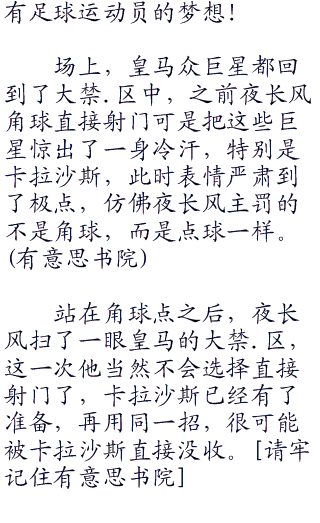 有足球运动员的梦想！
场上，皇马众巨星都回
到了大禁.区中，之前夜长风
角球直接射门可是把这些巨
星惊出了一身冷汗，特别是
卡拉沙斯，此时表情严肃到
了极点，仿佛夜长风主罚的
不是角球，而是点球一样。
(有意思书院)
站在角球点之后，夜长
风扫了一眼皇马的大禁.区，
这一次他当然不会选择直接
射门了，卡拉沙斯已经有了
准备，再用同一招，很可能
被卡拉沙斯直接没收。[请牢
记住有意思书院]